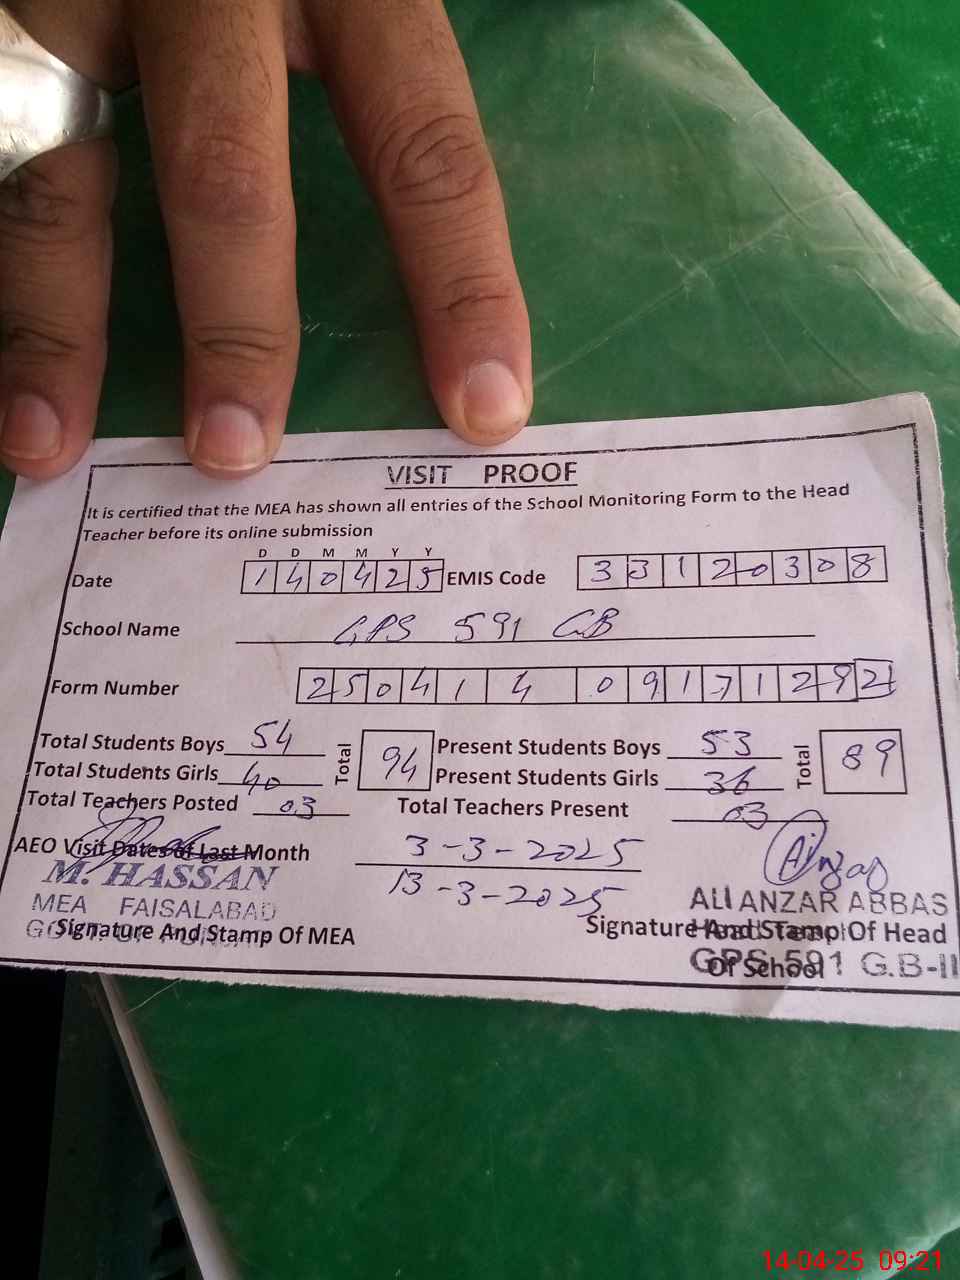 VISIT PROOF
It is certified that the MEA has shown all entries of the School Monitoring Form to the Head
Teacher before its online submission
D D M M Y Y
Date 1 4 0 4 2 5 EMIS Code 3 3 1 2 0 3 0 8
School Name GPS 591 GB
Form Number 2 5 0 4 1 4 0 9 1 7 1 2 9 2
Total Students Boys 54 Total 94 Present Students Boys 53 Total 89
Total Students Girls 40 Present Students Girls 36
Total Teachers Posted 03 Total Teachers Present 03
AEO Visit Dates of Last Month 3-3-2025
13-3-2025
M. HASSAN
MEA FAISALABAD
Signature And Stamp Of MEA
Ainzar
ALI ANZAR ABBAS
Signature And Stamp Of Head
Of School
GPS 591 G.B-II
14-04-25 09:21